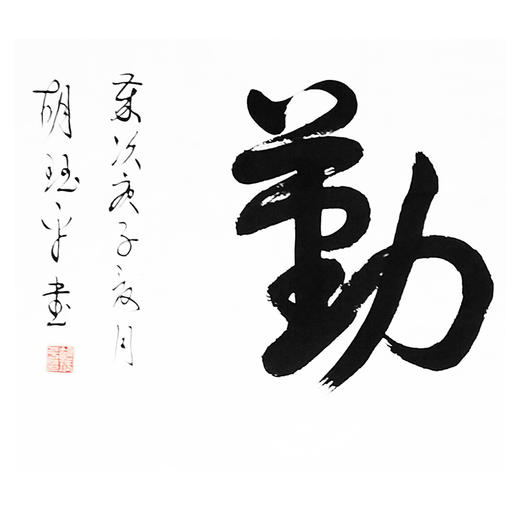 勤
岁次庚子夏月
胡珏平书